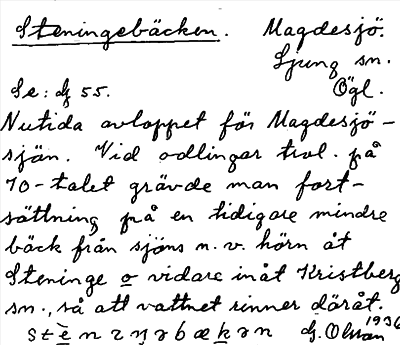 Steningebäcken. Magdesjö.
Ljung sn.
Se: G 55. Ögl.
Nutida avloppet för Magdesjö-
sjän. Vid odlingar trol. på
70-talet grävde man fort-
sättning på en tidigare mindre
bäck från sjöns n.v. hörn åt
Steninge o vidare inåt Kristberg
sn., så att vattnet rinner däråt.
G. Olson 1936